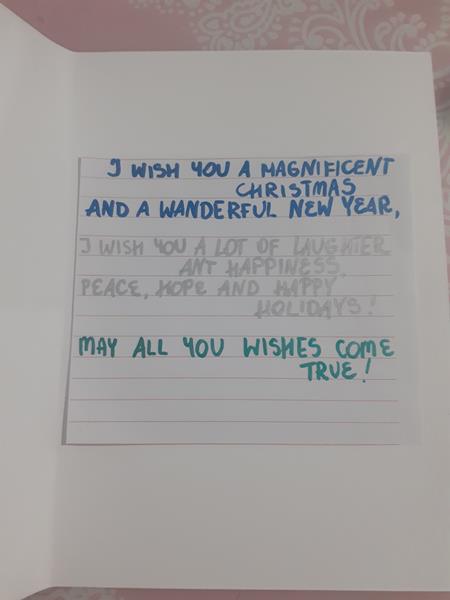 I WISH YOU A MAGNIFICENT
CHRISTMAS
AND A WANDERFUL NEW YEAR,
I WISH YOU A LOT OF LAUGHTER
ANT HAPPINESS,
PEACE, HOPE AND HAPPY
HOLIDAYS!
MAY ALL YOU WISHES COME
TRUE!